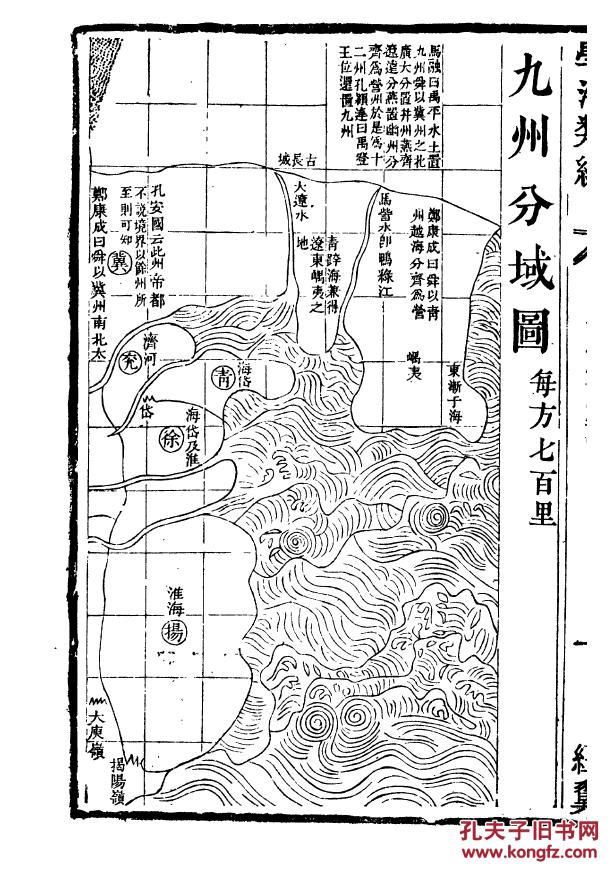 九州分域圖
每方七百里
馬融曰禹平水土置
九州舜以冀州之北
廣大分置并州燕齊
遼遠分燕置幽州分
齊為營州於是為十
二州孔穎達曰禹登
王位還置九州
古長城
大遼水
青跨海兼得
遼東嵎夷之
地
馬訾水即鴨綠江
鄭康成曰舜以青
州越海分齊為營
州
嵎夷
東漸于海
孔安國云此州帝都
不說境界以餘州所
至則可知
冀
鄭康成曰舜以冀州南北太
濟河
兗
海岱
青
岱
海岱及淮
徐
淮海
揚
大庾嶺
揭陽嶺
一
經翼
孔夫子旧书网
www.kongfz.com